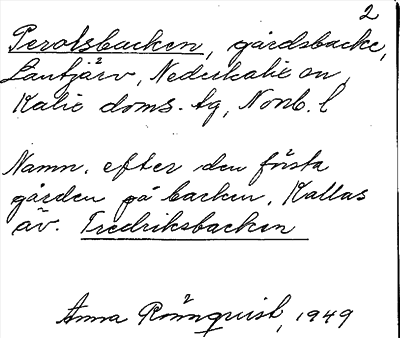 2
Perolsbacken, gårdsbacke,
Lantjärv, Nederkalix sn,
Kalix doms. tg, Nonb. l
Namn. efter den första
gården på backen. Kallas
äv. Fredriksbacken
Anna Rönnquist, 1949